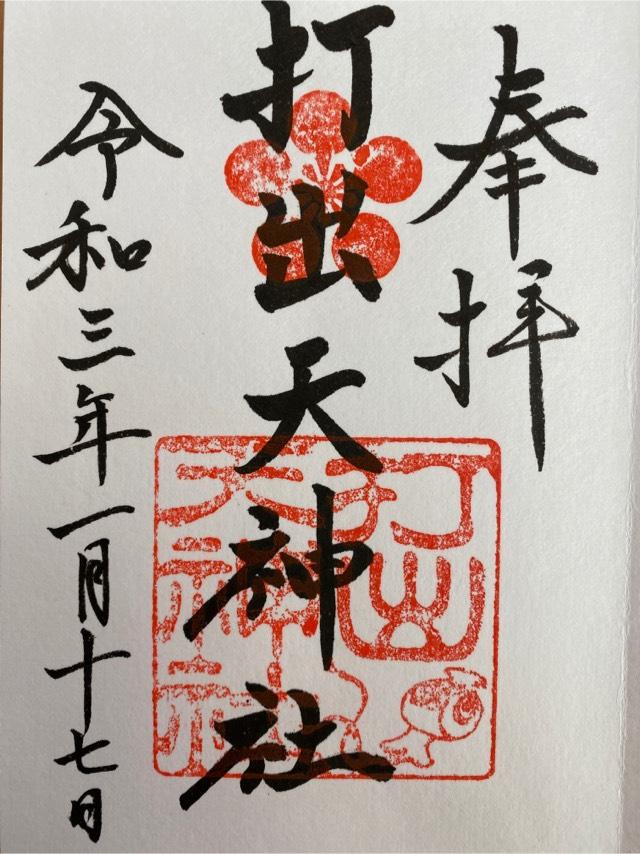 奉拝
打出天神社
令和三年一月十七日
打出
天神社